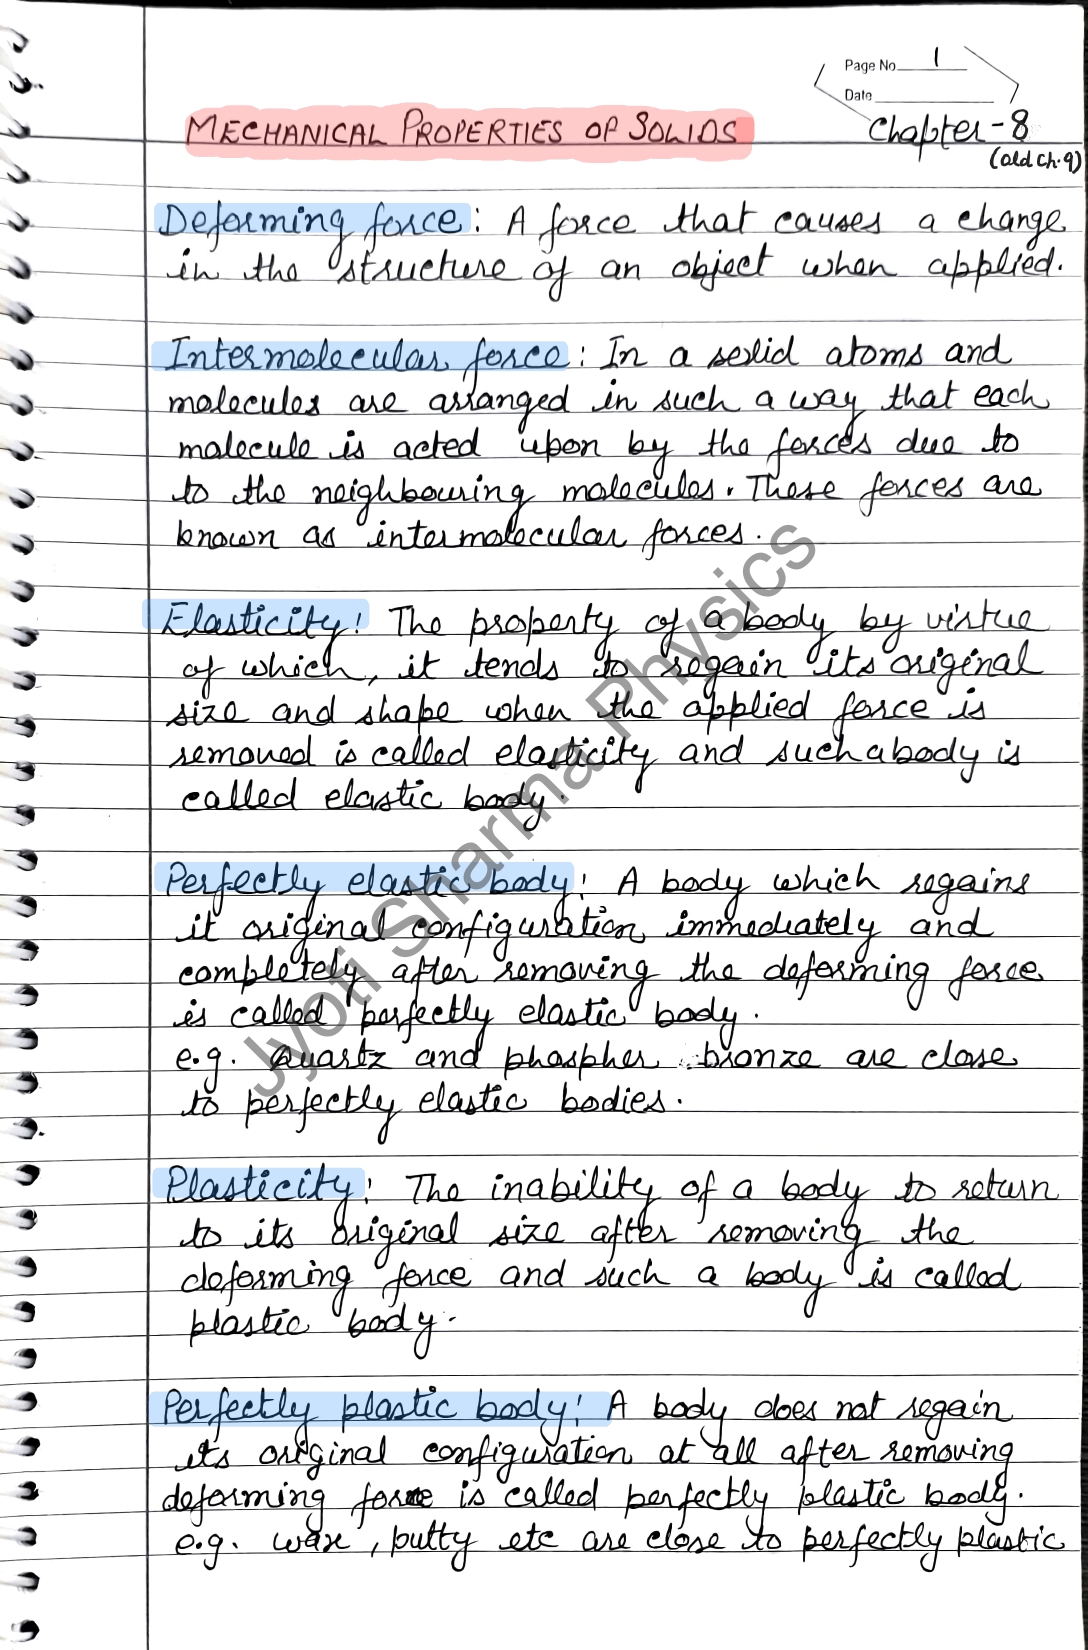 Page No 1
Date
MECHANICAL PROPERTIES OF SOLIDS
Chapter-8
(old ch.9)
Deforming force: A force that causes a change
in the structure of an object when applied.
Intermolecular force: In a solid atoms and
molecules are arranged in such a way that each
molecule is acted upon by the forces due to
to the neighbouring molecules. These forces are
known as intermolecular forces.
Elasticity: The property of a body by virtue
of which, it tends to regain its original
size and shape when the applied force is
removed is called elasticity and such a body is
called elastic body.
Perfectly elastic body: A body which regains
it original configuration immediately and
completely after removing the deforming force
is called perfectly elastic body.
e.g. Quartz and phospher bronze are close
to perfectly elastic bodies.
Plasticity: The inability of a body to return
to its original size after removing the
deforming force and such a body is called
plastic body.
Perfectly plastic body: A body does not regain
its original configuration at all after removing
deforming force is called perfectly plastic body.
e.g. wax, putty etc are close to perfectly plastic
Jyoti Sharma Physics